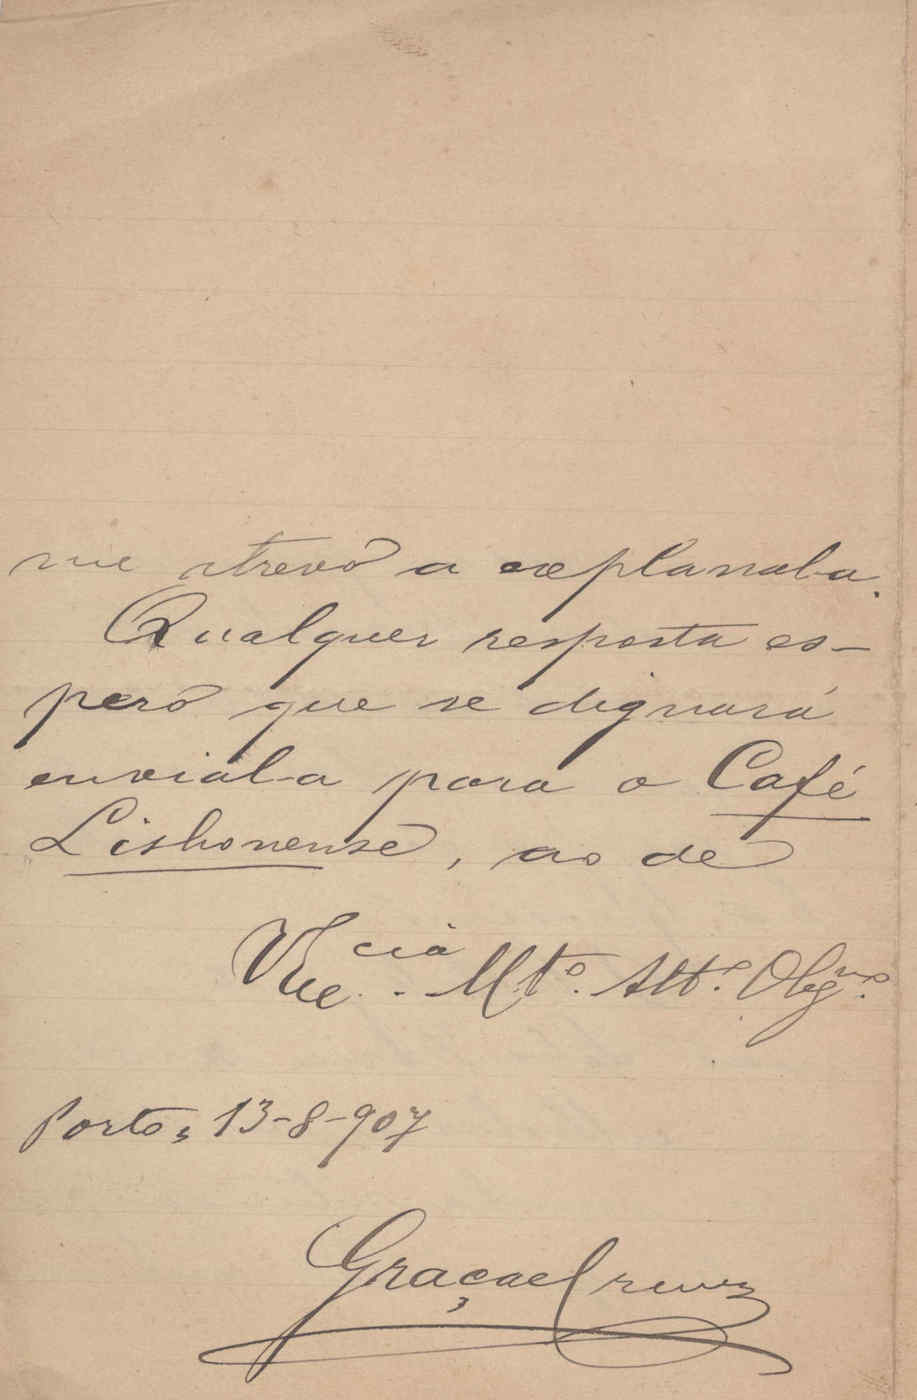 me atrevo a explanal-a.
Qualquer resposta es-
pero que se dignará
envial-a para o Café
Lisbonense, ao de
V Exc.cia Mt.º Att.º Obg.mo
Porto, 13-8-907
Graça e Cruz